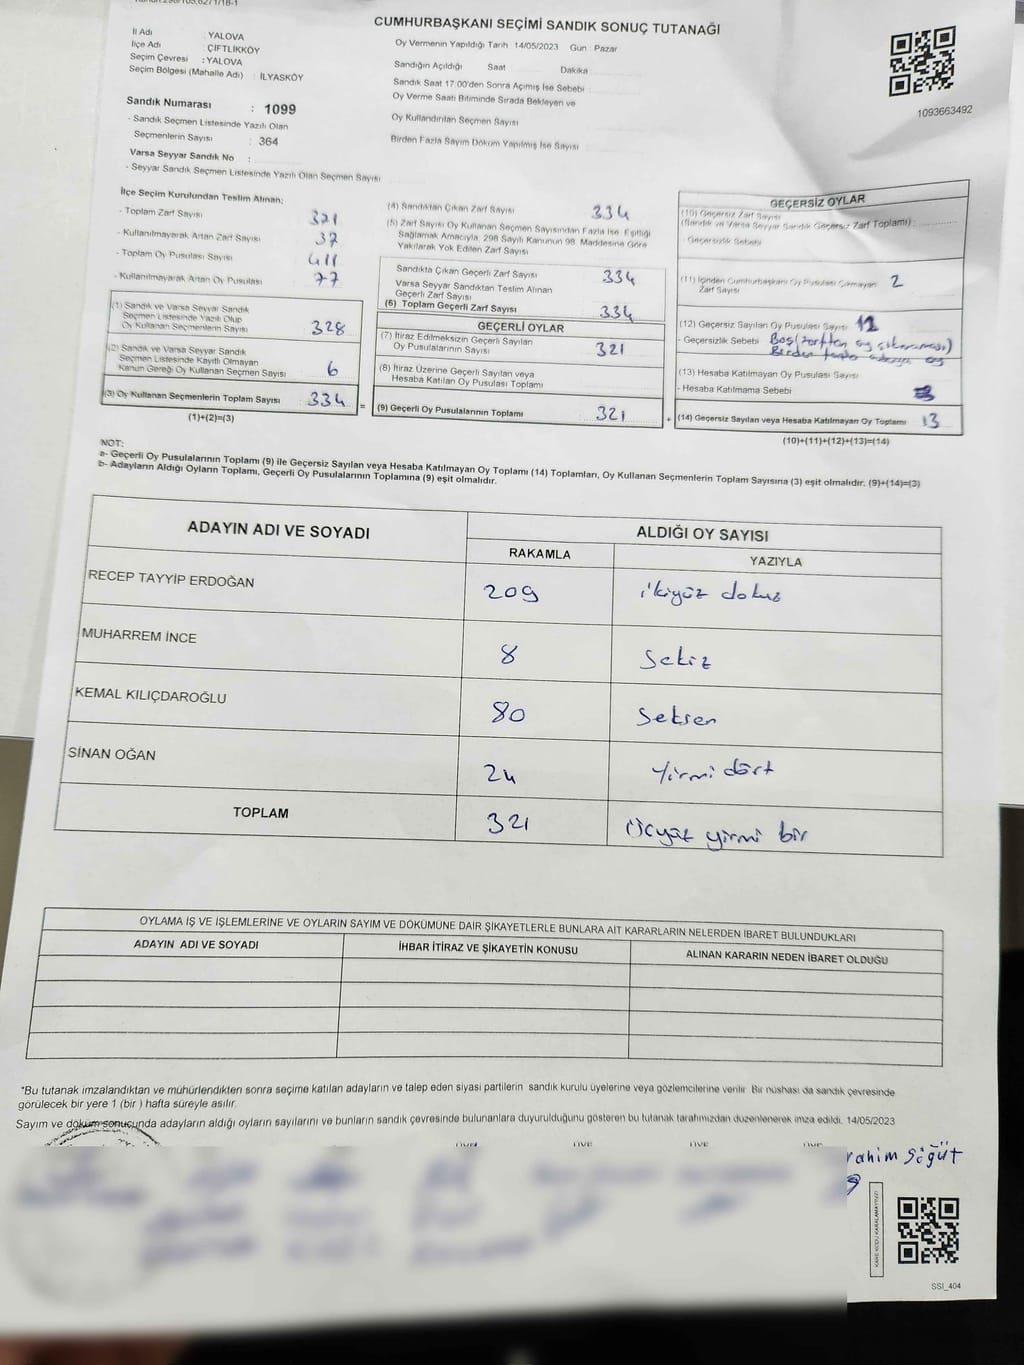 CUMHURBAŞKANI SEÇİMİ SANDIK SONUÇ TUTANAĞI
İl Adı : YALOVA
İlçe Adı : ÇİFTLİKKÖY
Seçim Çevresi : YALOVA
Seçim Bölgesi (Mahalle Adı) : İLYASKÖY
Sandık Numarası : 1099
- Sandık Seçmen Listesinde Yazılı Olan
Seçmenlerin Sayısı : 364
Varsa Seyyar Sandık No :
- Seyyar Sandık Seçmen Listesinde Yazılı Olan Seçmen Sayısı
Oy Vermenin Yapıldığı Tarih 14/05/2023 Gün : Pazar
Sandığın Açıldığı Saat Dakika
Sandık Saat 17:00'den Sonra Açılmış İse Sebebi
Oy Verme Saati Bitiminde Sırada Bekleyen ve
Oy Kullandırılan Seçmen Sayısı
Birden Fazla Sayım Döküm Yapılmış İse Sayısı
1093663492
İlçe Seçim Kurulundan Teslim Alınan;
- Toplam Zarf Sayısı 371
- Kullanılmayarak Artan Zarf Sayısı 37
- Toplam Oy Pusulası Sayısı 411
- Kullanılmayarak Artan Oy Pusulası 77
(1) Sandık ve Varsa Seyyar Sandık
Seçmen Listesinde Yazılı Olup
Oy Kullanan Seçmenlerin Sayısı 328
(2) Sandık ve Varsa Seyyar Sandık
Seçmen Listesinde Kayıtlı Olmayan
Kanun Gereği Oy Kullanan Seçmen Sayısı 6
(3) Oy Kullanan Seçmenlerin Toplam Sayısı 334
(1)+(2)=(3)
(4) Sandıktan Çıkan Zarf Sayısı 334
(5) Zarf Sayısı Oy Kullanan Seçmen Sayısından Fazla İse Eşitliği
Sağlamak Amacıyla; 298 Sayılı Kanunun 98. Maddesine Göre
Yakılarak Yok Edilen Zarf Sayısı
Sandıkta Çıkan Geçerli Zarf Sayısı 334
Varsa Seyyar Sandıktan Teslim Alınan
Geçerli Zarf Sayısı
(6) Toplam Geçerli Zarf Sayısı 334
GEÇERLİ OYLAR
(7) İtiraz Edilmeksizin Geçerli Sayılan
Oy Pusulalarının Sayısı 321
(8) İtiraz Üzerine Geçerli Sayılan veya
Hesaba Katılan Oy Pusulası Toplamı
(9) Geçerli Oy Pusulalarının Toplamı 321
=
+
GEÇERSİZ OYLAR
(10) Geçersiz Zarf Sayısı
(Sandık ve Varsa Seyyar Sandık Geçersiz Zarf Toplamı) :
- Geçersizlik Sebebi
(11) İçinden Cumhurbaşkanı Oy Pusulası Çıkmayan
Zarf Sayısı 2
(12) Geçersiz Sayılan Oy Pusulası Sayısı
- Geçersizlik Sebebi Boş (zarftan oy çıkmaması)
Birden fazla oy
(13) Hesaba Katılmayan Oy Pusulası Sayısı
- Hesaba Katılmama Sebebi
(14) Geçersiz Sayılan veya Hesaba Katılmayan Oy Toplamı 13
(10)+(11)+(12)+(13)=(14)
NOT:
a- Geçerli Oy Pusulalarının Toplamı (9) ile Geçersiz Sayılan veya Hesaba Katılmayan Oy Toplamı (14) Toplamları, Oy Kullanan Seçmenlerin Toplam Sayısına (3) eşit olmalıdır. (9)+(14)=(3)
b- Adayların Aldığı Oyların Toplamı, Geçerli Oy Pusulalarının Toplamına (9) eşit olmalıdır.
ADAYIN ADI VE SOYADI
ALDIĞI OY SAYISI
RAKAMLA YAZIYLA
RECEP TAYYİP ERDOĞAN 209 ikiyüz dokuz
MUHARREM İNCE 8 Sekiz
KEMAL KILIÇDAROĞLU 80 Seksen
SİNAN OĞAN 24 Yirmi dört
TOPLAM 321 Üçyüz yirmi bir
OYLAMA İŞ VE İŞLEMLERİNE VE OYLARIN SAYIM VE DÖKÜMÜNE DAİR ŞİKAYETLERLE BUNLARA AİT KARARLARIN NELERDEN İBARET BULUNDUKLARI
ADAYIN ADI VE SOYADI İHBAR İTİRAZ VE ŞİKAYETİN KONUSU ALINAN KARARIN NEDEN İBARET OLDUĞU
*Bu tutanak imzalandıktan ve mühürlendikten sonra seçime katılan adayların ve talep eden siyasi partilerin sandık kurulu üyelerine veya gözlemcilerine verilir. Bir nüshası da sandık çevresinde
görülecek bir yere 1 (bir) hafta süreyle asılır.
Sayım ve döküm sonucunda adayların aldığı oyların sayılarını ve bunların sandık çevresinde bulunanlara duyurulduğunu gösteren bu tutanak tarafımızdan düzenlenerek imza edildi. 14/05/2023
rahim Söğüt
KARE KODU KARALAMAYINIZ!
SSI_404